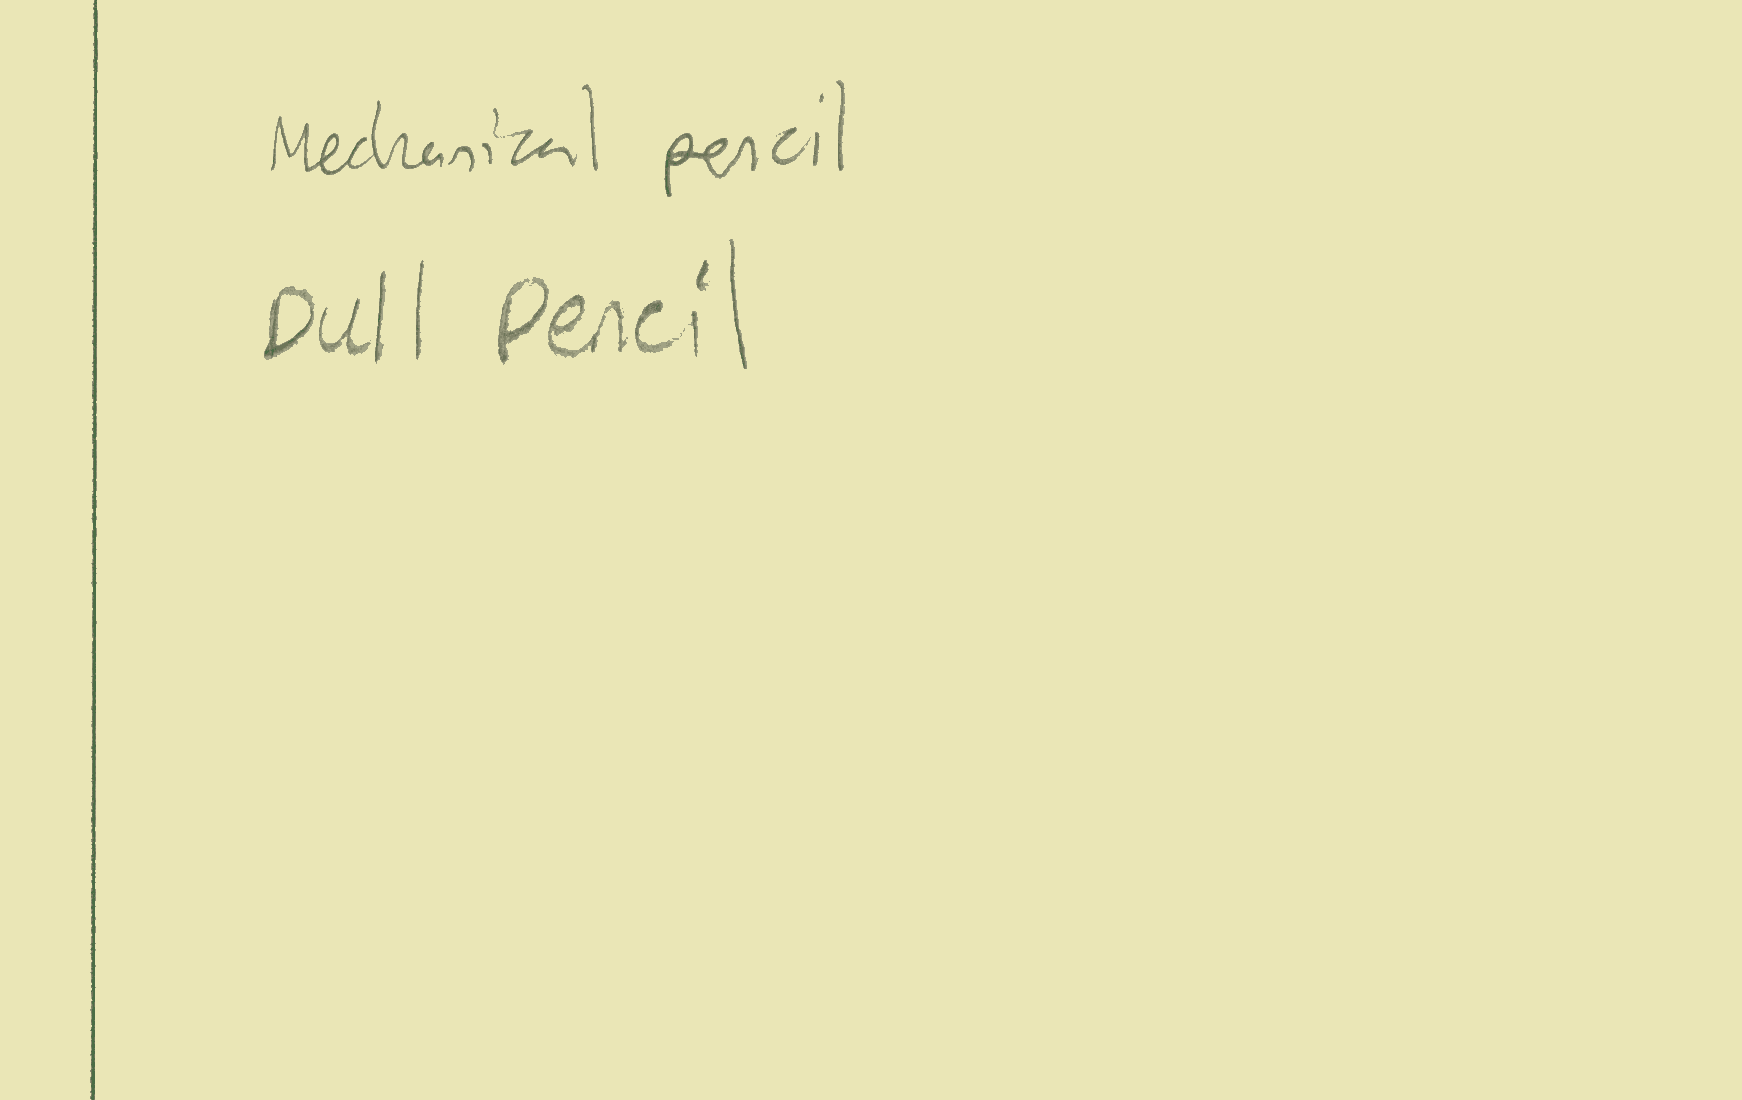 Mechanical pencil
Dull Pencil